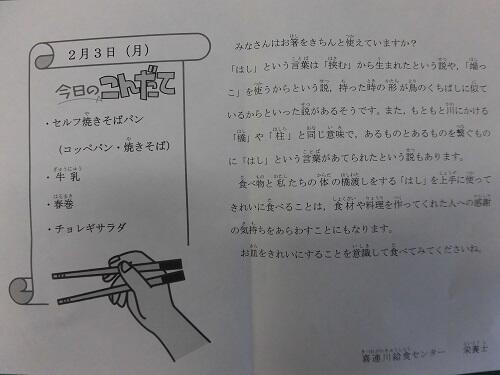 2月3日(月)
今日のこんだて
・セルフ焼きそばパン
(コッペパン・焼きそば)
・牛乳
・春巻
・チョレギサラダ
みなさんはお箸をきちんと使えていますか?
「はし」という言葉は「挟む」から生まれたという説や、「端っ
こ」を使うからという説、持った時の形が鳥のくちばしに似て
いるからといった説があるそうです。また、もともと川にかける
「橋」や「柱」と同じ意味で、あるものとあるものを繋ぐもの
に「はし」という言葉があてられたという説もあります。
食べ物と私たちの体の橋渡しをする「はし」を上手に使って
きれいに食べることは、食材や料理を作ってくれた人への感謝
の気持ちをあらわすことにもなります。
お皿をきれいにすることを意識して食べてみてくださいね。
喜連川給食センター 栄養士